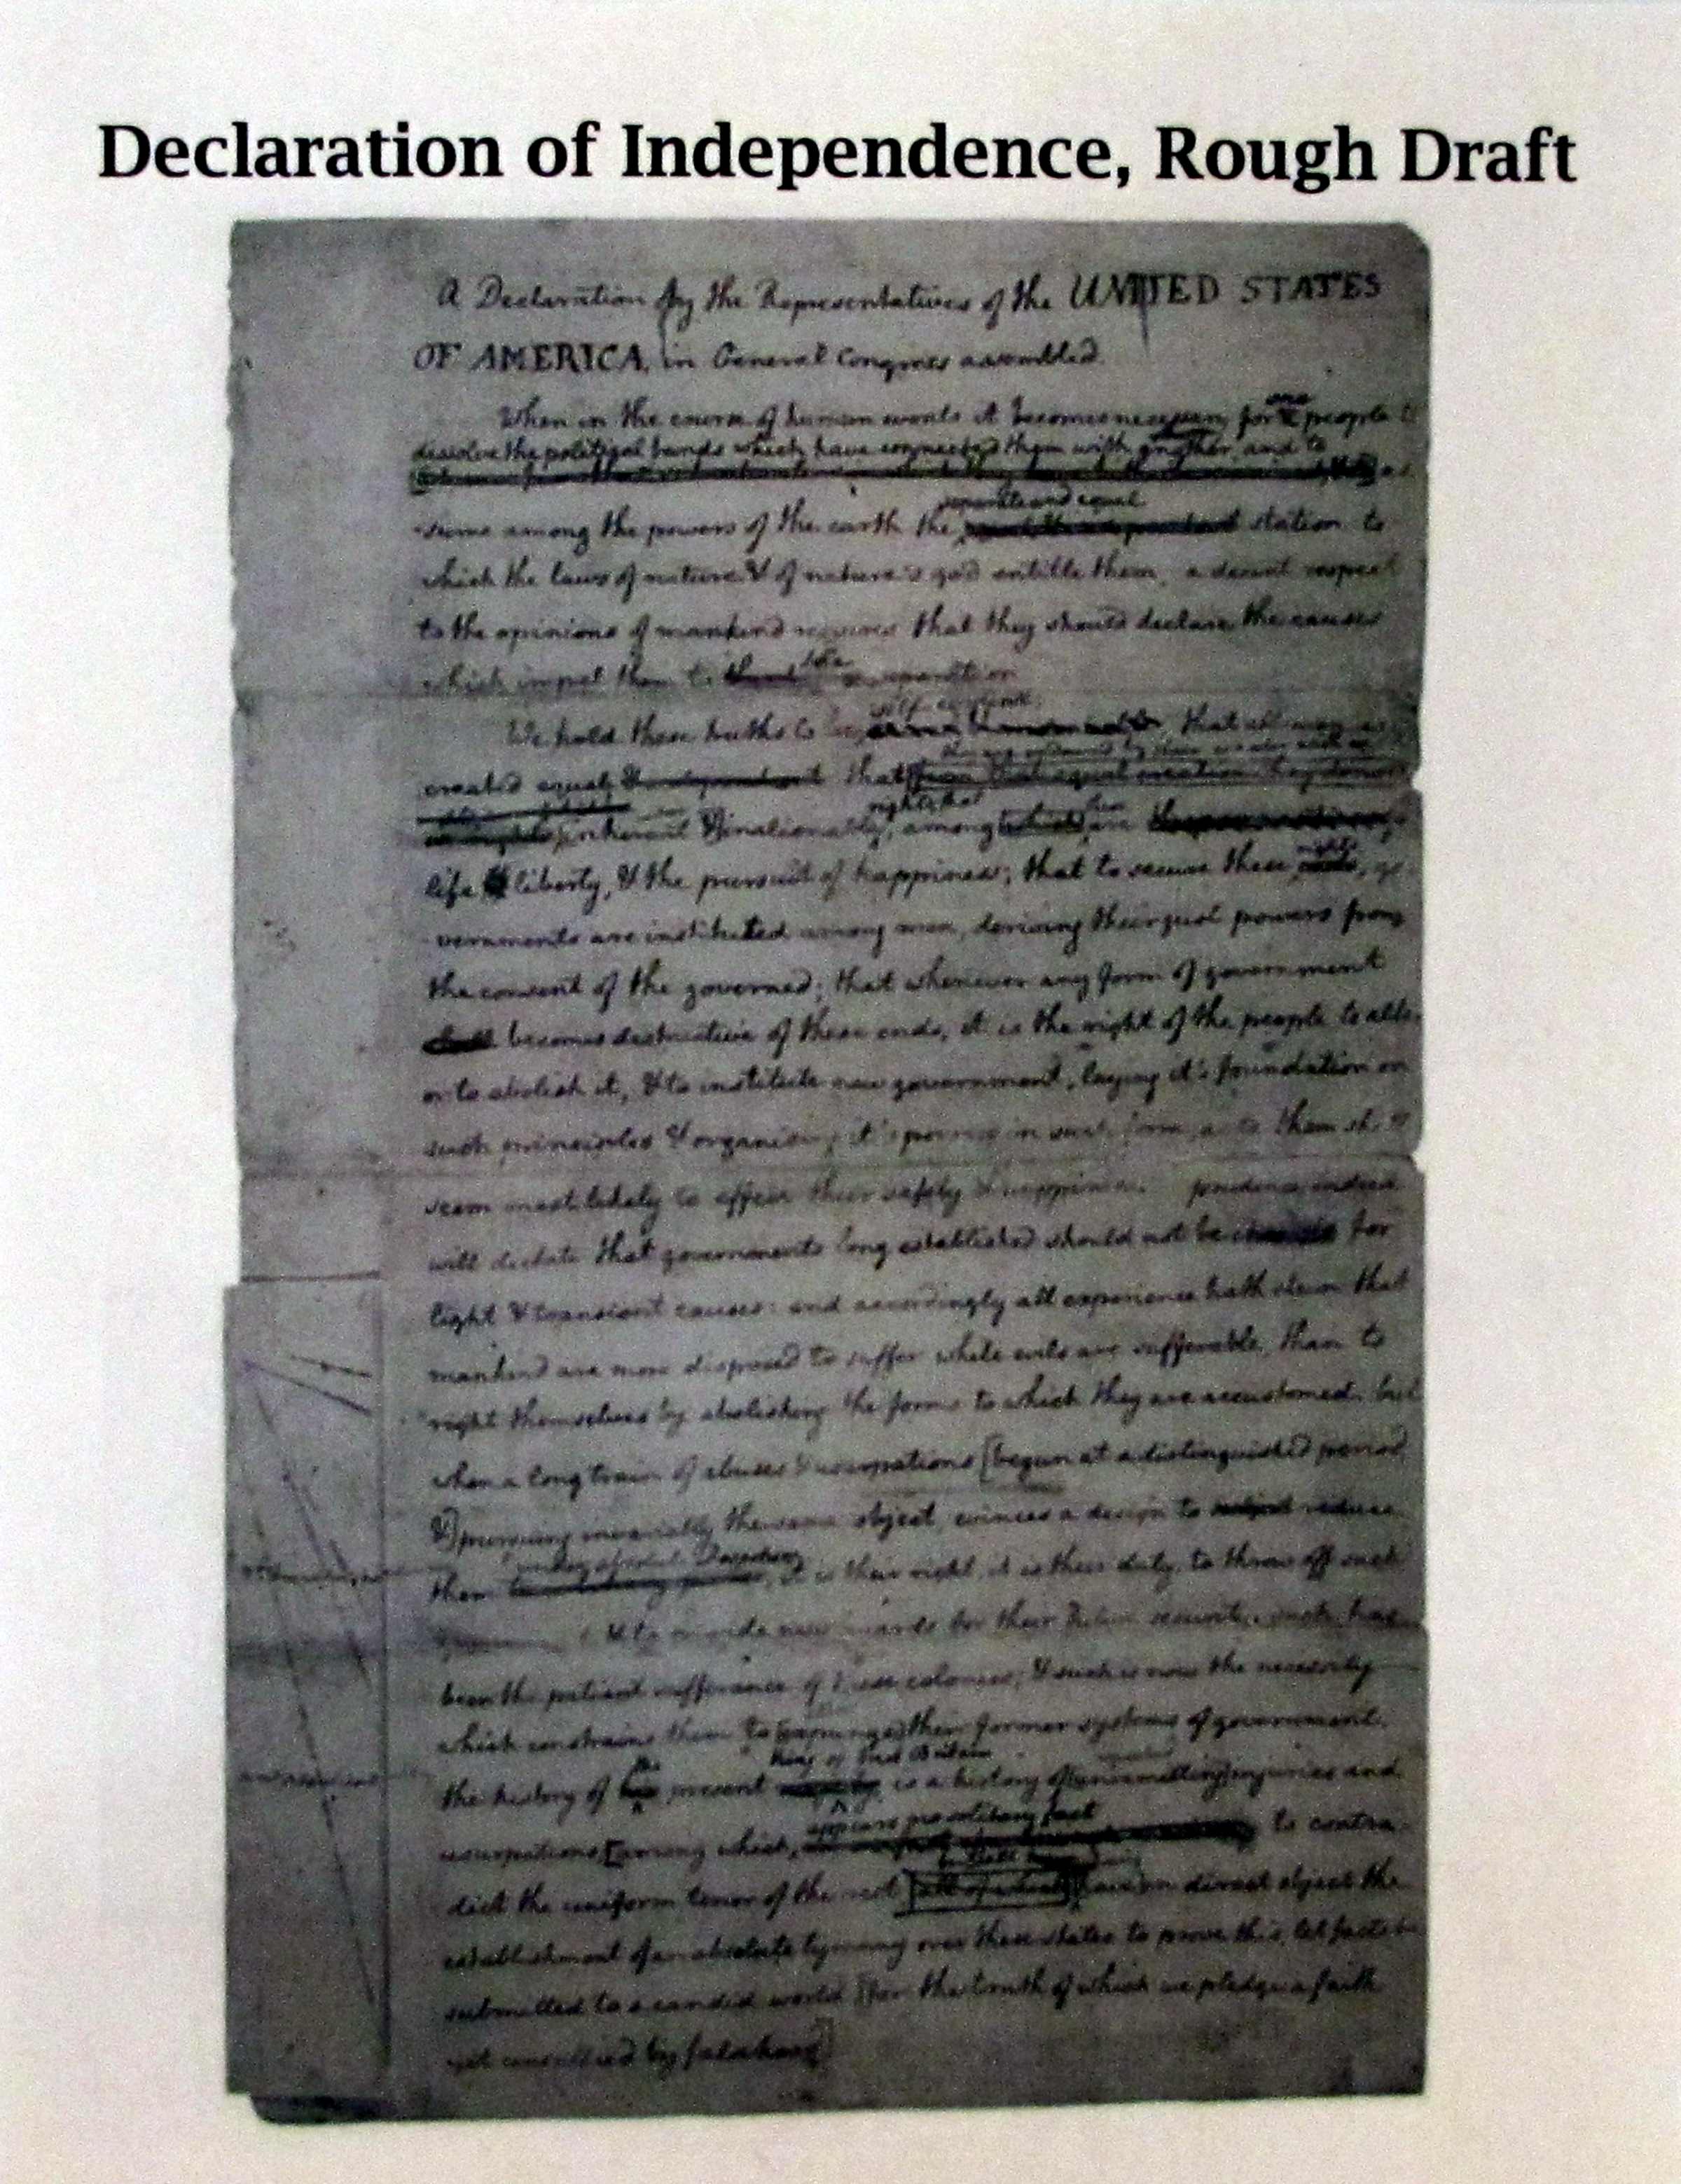 Declaration of Independence, Rough Draft
A Declaration by the Representatives of the UNITED STATES
OF AMERICA, in General Congress assembled.
When in the course of human events it becomes necessary for one people to
dissolve the political bands which have connected them with another, and to
as-
separate and equal
-sume among the powers of the earth the station to
which the laws of nature & of nature's god entitle them, a decent respect
to the opinions of mankind requires that they should declare the causes
which impel them to the separation
self evident
We hold these truths to be that all men are
created equal & independent that from that equal creation they
rights; that
inherent & inalienable, among which are
life & liberty, & the pursuit of happiness; that to secure these rights, go-
-vernments are instituted among men, deriving their just powers from
the consent of the governed; that whenever any form of government
shall becomes destructive of these ends, it is the right of the people to alter
or to abolish it, & to institute new government, laying it's foundation on
such principles & organising it's powers in such form, as to them shall
seem most likely to effect their safety & happiness. prudence indeed
will dictate that governments long established should not be changed for
light & transient causes: and accordingly all experience hath shewn that
mankind are more disposed to suffer while evils are sufferable, than to
right themselves by abolishing the forms to which they are accustomed. but
when a long train of abuses & usurpations [begun at a distinguished period,
&] pursuing invariably the same object, evinces a design to reduce
under absolute Despotism
them it is their right, it is their duty, to throw off such
& to provide new guards for their future security. such has
been the patient sufferance of these colonies; & such is now the necessity
which constrains them to [expunge] their former systems of government.
the King of Great Britain
the history of his present is a history of [unremitting] injuries and
appears no solitary fact
usurpations, [among which, to contra-
dict the uniform tenor of the rest all of which have in direct object the
establishment of an absolute tyranny over these states. to prove this, let facts be
submitted to a candid world [for the truth of which we pledge a faith
yet unsullied by falsehood]